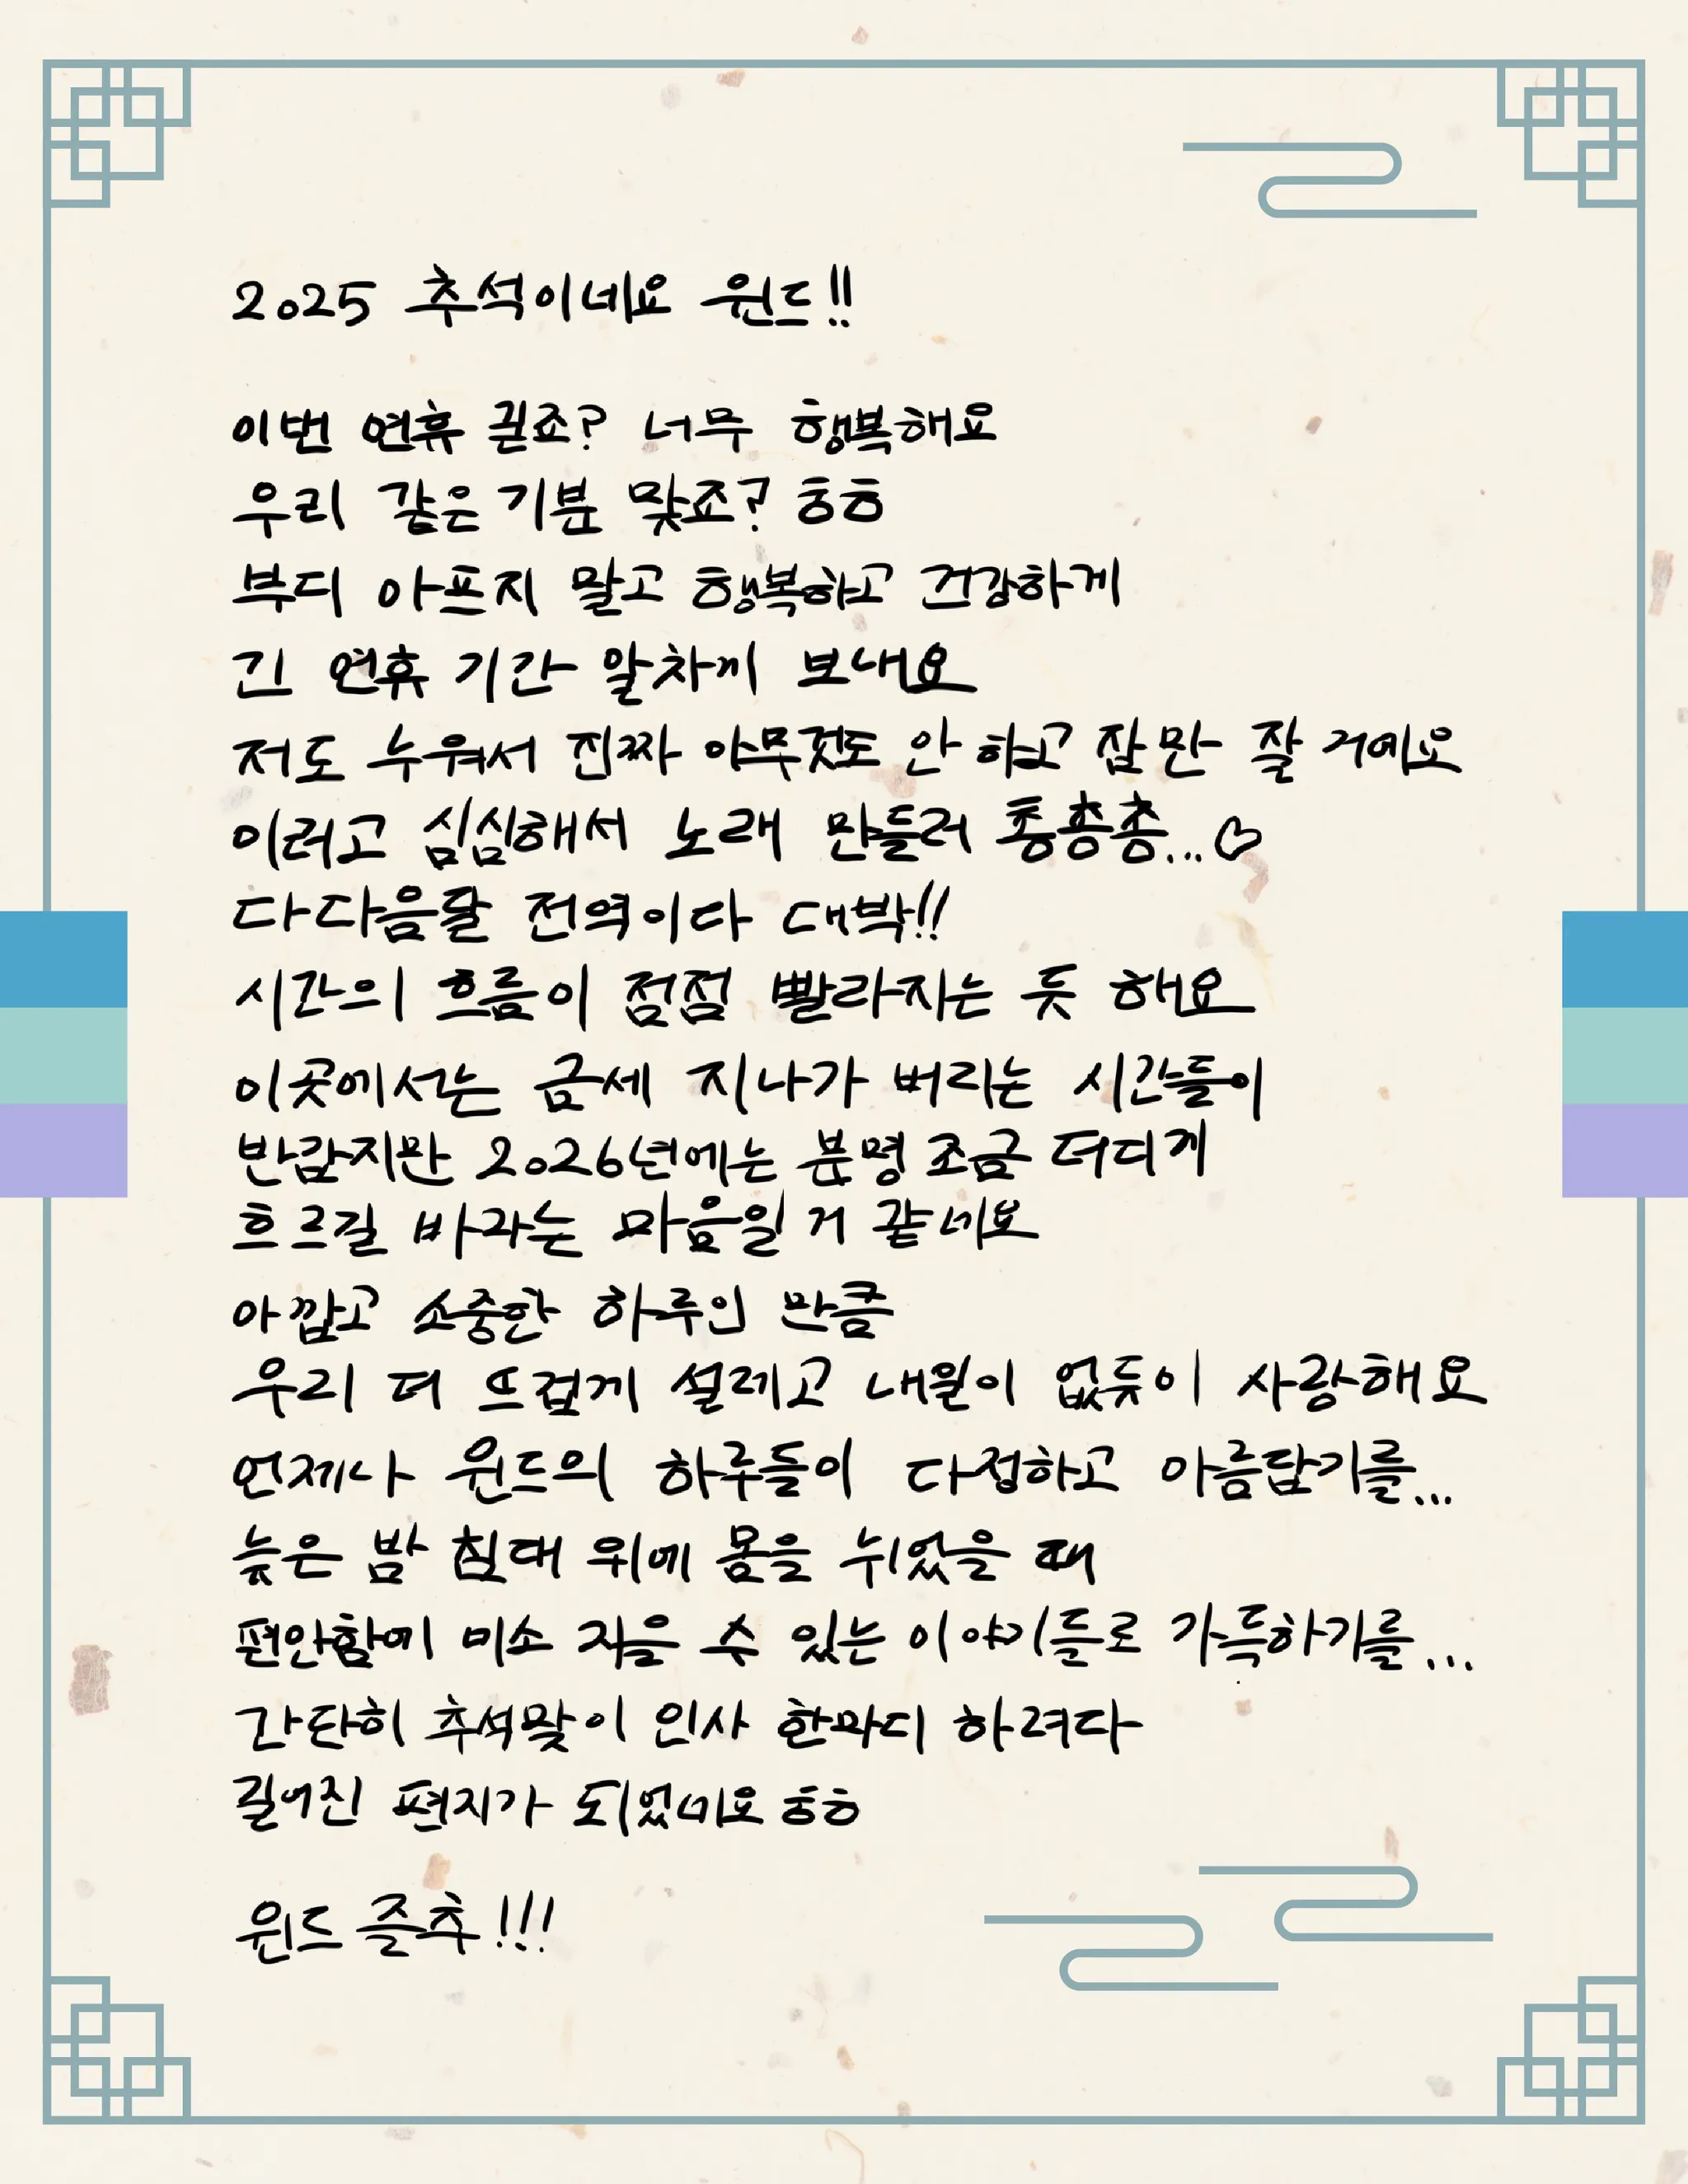 2025 추석이네요 윈드!!
이번 연휴 긷죠? 너무 행복해요
우리 같은 기분 맞죠? ㅎㅎ
부디 아프지 말고 행복하고 건강하게
긴 연휴 기간 알차게 보내요
저도 누워서 진짜 아무것도 안 하고 잠만 잘 거예요
이러고 심심해서 노래 만들러 총총총...♡
다다음달 전역이다 대박!!
시간의 흐름이 점점 빨라지는 듯 해요
이곳에서는 금세 지나가 버리는 시간들이
반갑지만 2026년에는 분명 조금 더디게
흐르길 바라는 마음일 거 같네요
아깝고 소중한 하루인 만큼
우리 더 뜨겁게 설레고 내일이 없듯이 사랑해요
언제나 윈드의 하루들이 다정하고 아름답기를...
늦은 밤 침대 위에 몸을 뉘었을 때
편안함에 미소 지을 수 있는 이야기들로 가득하기를...
간단히 추석맞이 인사 한마디 하려다
길어진 편지가 되었네요 ㅎㅎ
윈드 즐추!!!